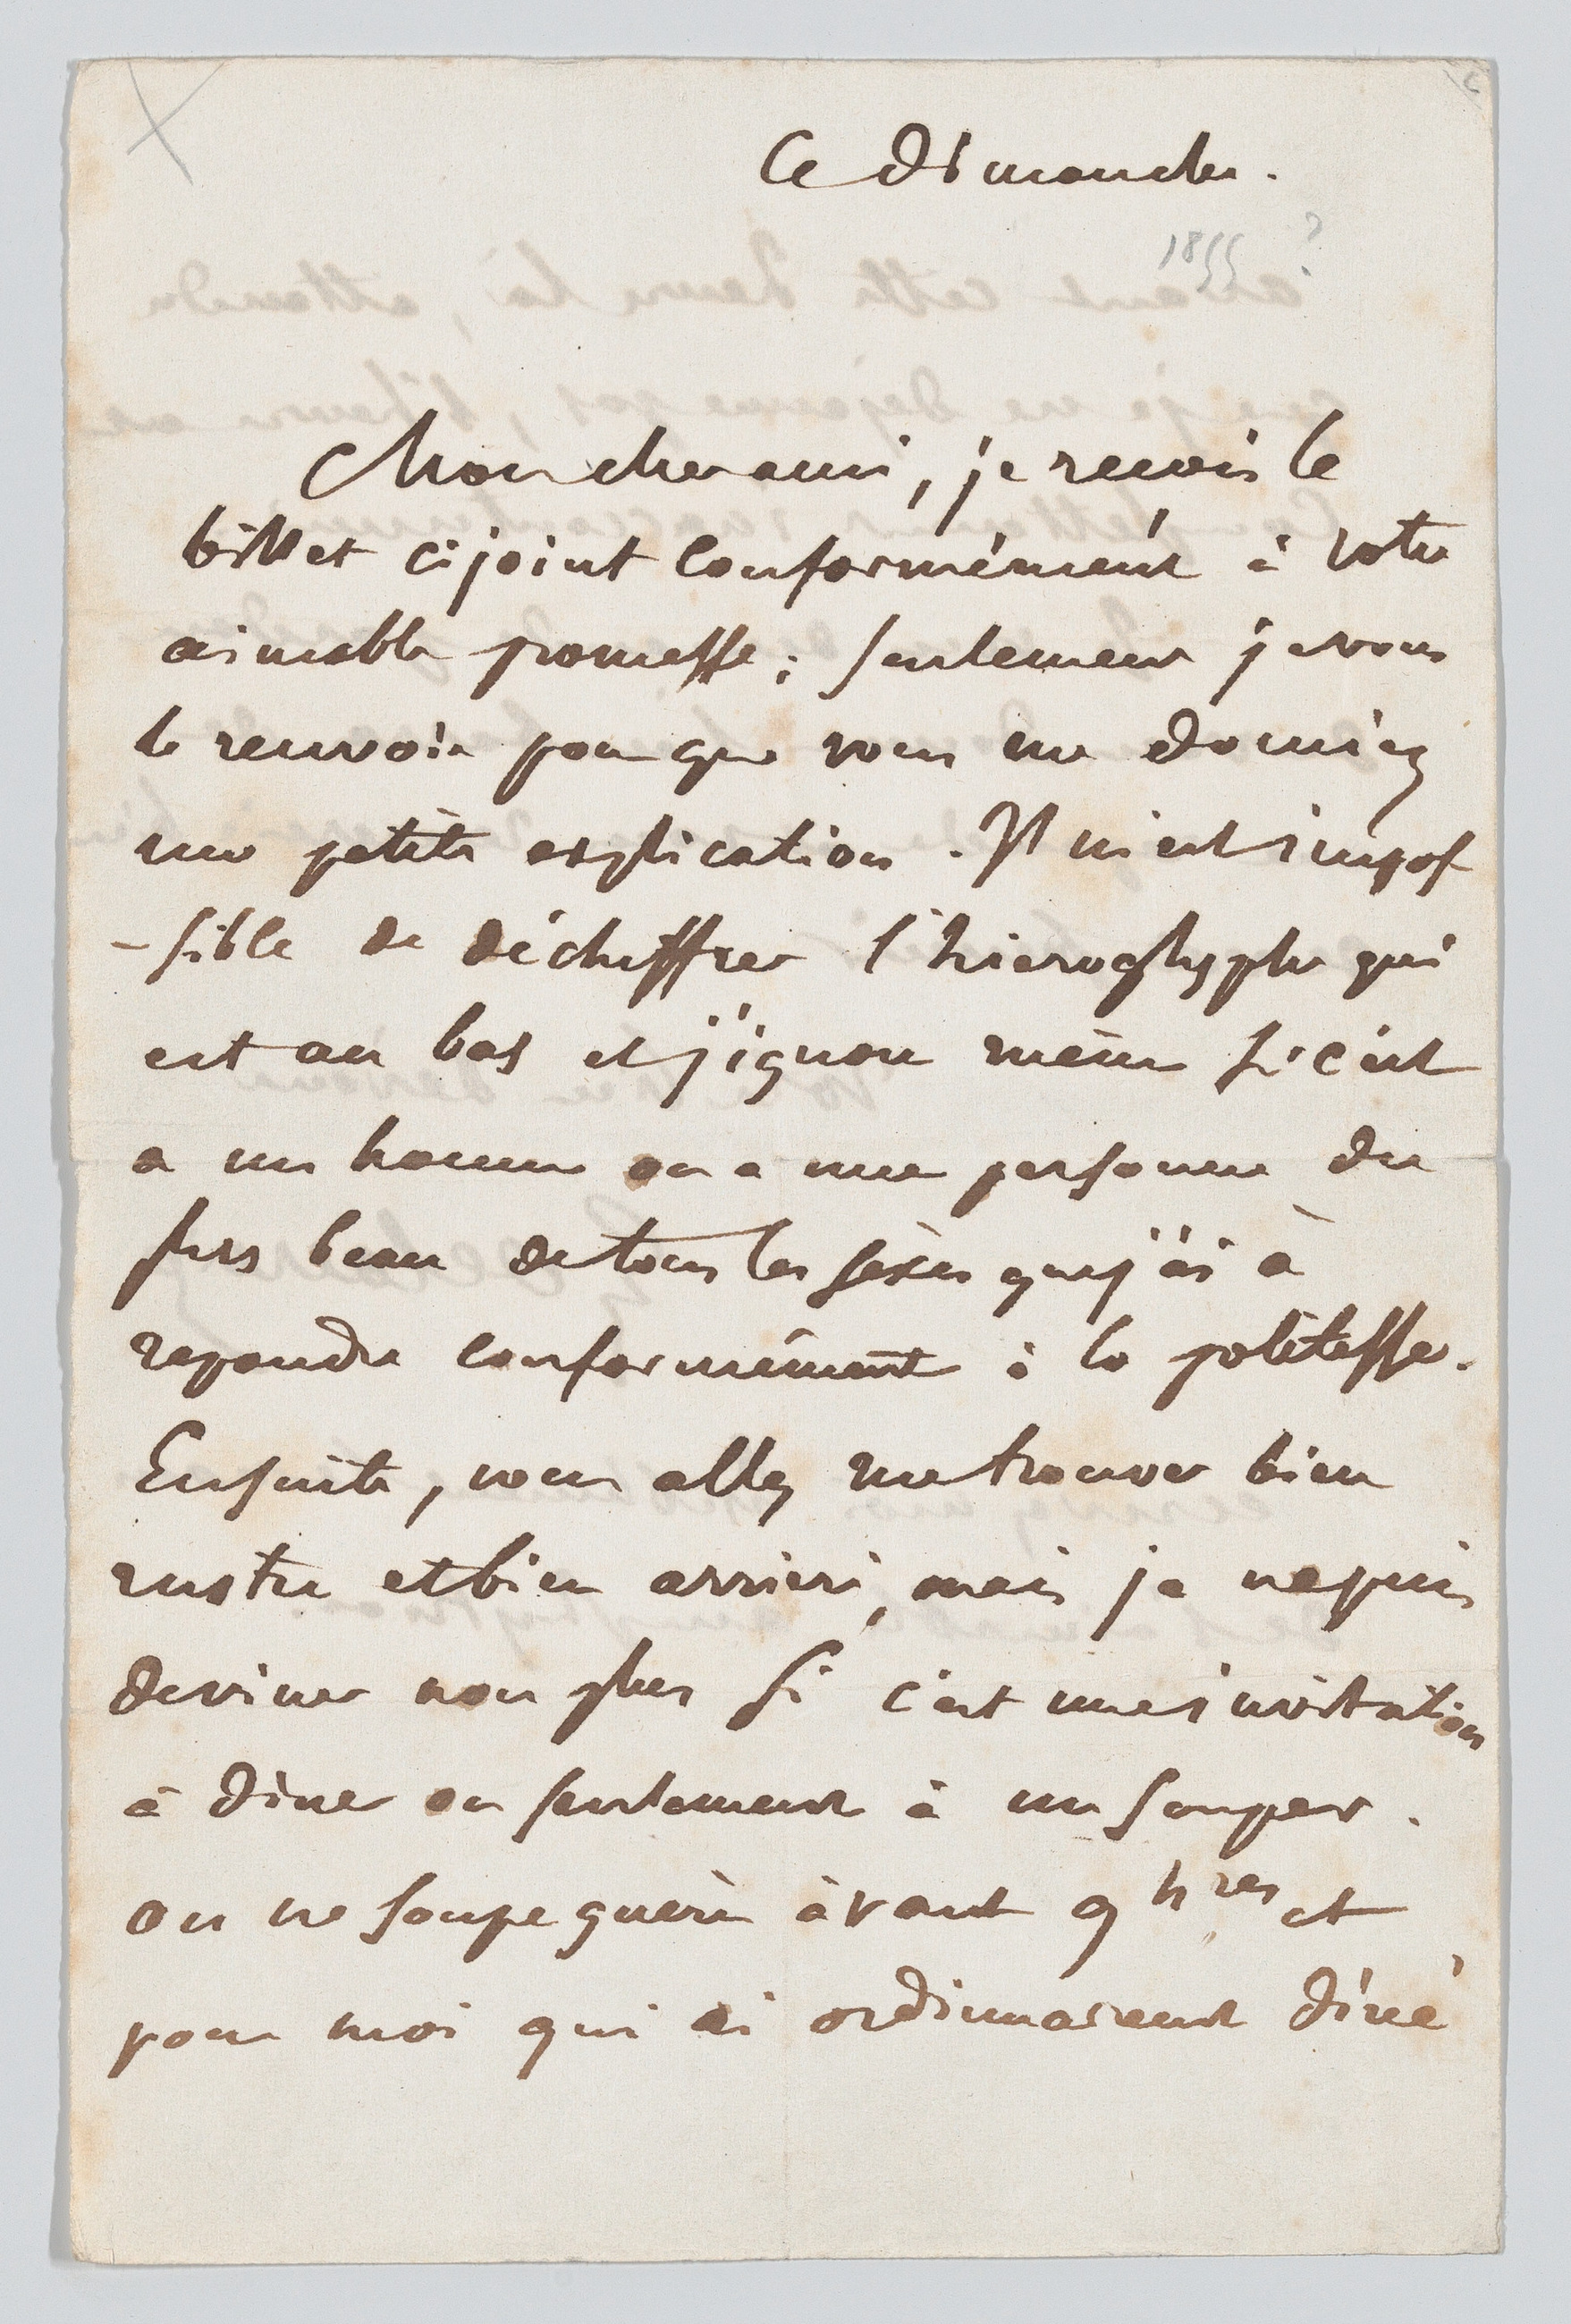 Ce Dimanche.
1855 ?
Mon cher ami, je reçois le
billet ci joint conformément à votre
aimable promesse ; seulement je vous
le renvoie pour que vous me donniez
une petite explication. Il m'est impos
-sible de déchiffrer l'hieroglyphe qui
est au bas et j'ignore même si c'est
a un homme ou a une personne du
plus beau de tous les sexes que j'ai à
repondre conformément à la politesse.
Ensuite, vous allez me trouver bien
rustre et bien arriéré, mais je ne puis
deviner non plus si c'est une invitation
à diner ou seulement à un souper.
on ne soupe guère avant 9 hres et
pour moi qui ai ordinnairement diné